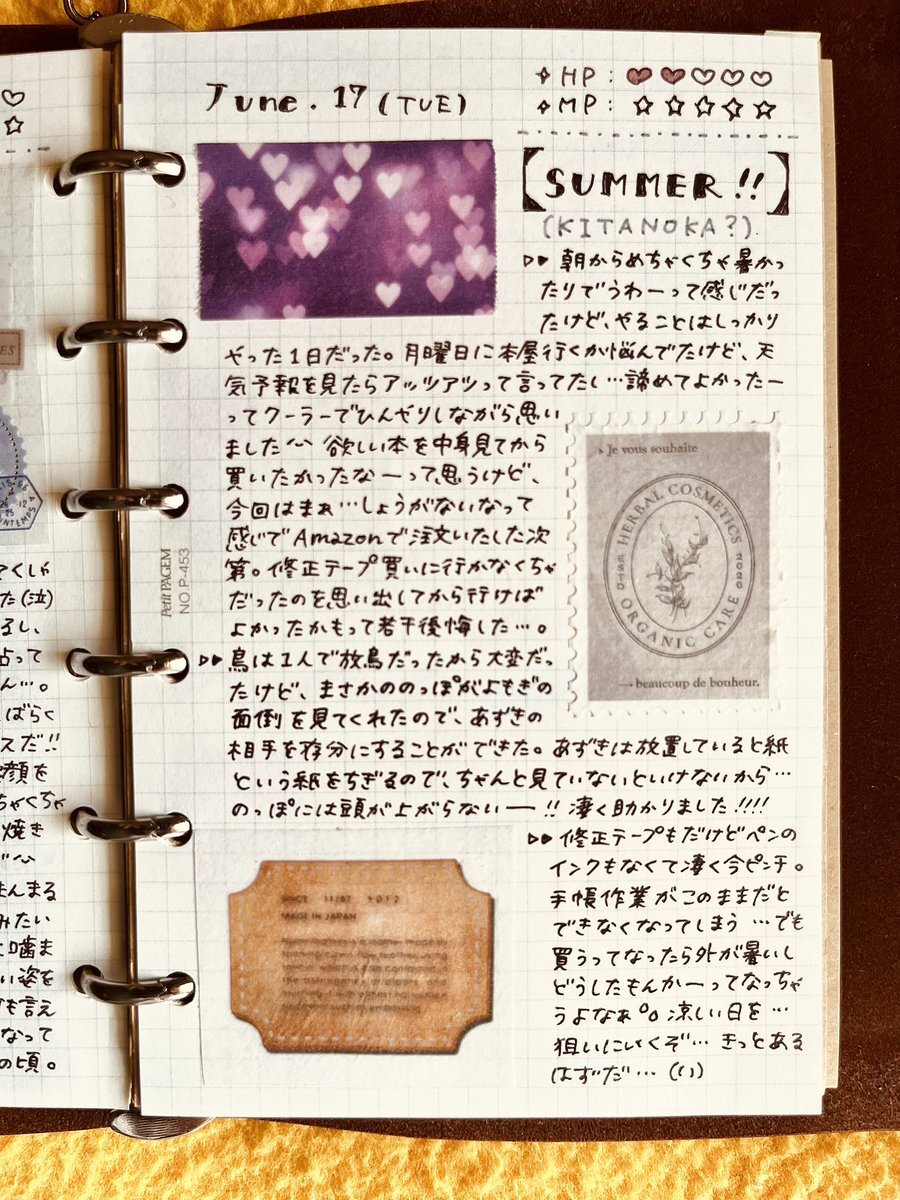 June. 17 (TUE)
✧HP: ♥♥♡♡♡
✧MP: ☆☆☆☆☆
【SUMMER!!】
(KITANOKA?)
▷▷朝からめちゃくちゃ暑かっ
たりでうわーって感じだっ
たけど、やることはしっかり
やった1日だった。月曜日に本屋行くか悩んでたけど、天
気予報を見たらアッツアツって言ってたし…諦めてよかったー
ってクーラーでひんやりしながら思い
ました^^ 欲しい本を中身見てから
買いたかったなーって思うけど、
今回はまぁ…しょうがないなって
感じでAmazonで注文いたした次
第。修正テープ買いに行かなくちゃ
だったのを思い出してから行けば
よかったかもって若干後悔した…。
▷▷鳥は1人で放鳥だったから大変だっ
たけど、まさかののっぽがよもぎの
面倒を見てくれたので、あずきの
相手を存分にすることができた。あずきは放置していると紙
という紙をちぎるので、ちゃんと見ていないといけないから…
のっぽには頭が上がらないー!! 凄く助かりました!!!!
▷▷修正テープもだけどペンの
インクもなくて凄く今ピンチ。
手帳作業がこのままだと
できなくなってしまう…でも
買うってなったら外が暑いし
どうしたもんかーってなっちゃ
うよなぁ。涼しい日を…
狙いにいくぞ…きっとある
はずだ…
Je vous souhaite
HERBAL COSMETICS
ESTD 2020
ORGANIC CARE
→beaucoup de bonheur.
MADE IN JAPAN
Petit PAGEM
NO P-453
ES
てくしゃ
た(泣)
るし、
占って
ん…。
ばらく
スだ!!
顔を
ちゃくちゃ
焼き
まんまる
みたい
噛ま
い姿を
も言え
なって
の頃。